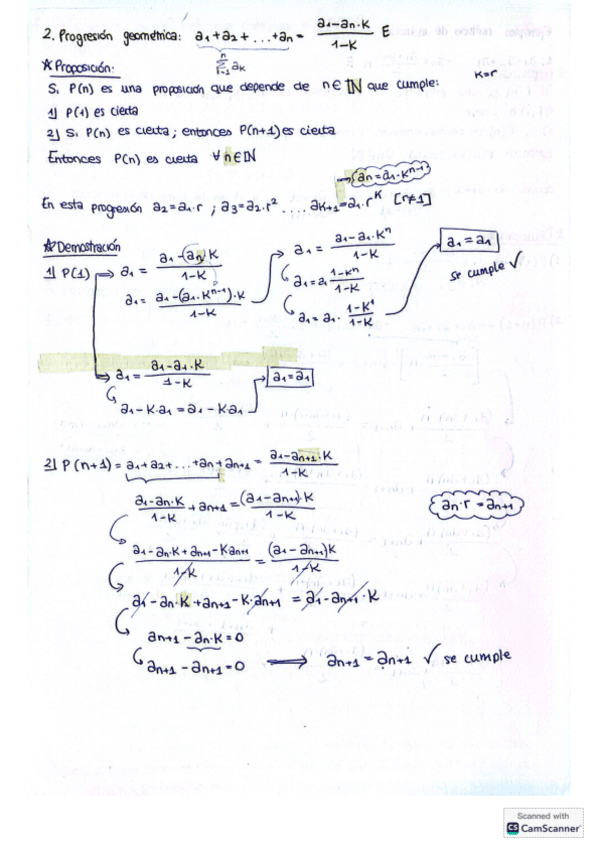 2. Progresión geométrica: a1+a2+...+an = (a1-an·K)/(1-K) E
n Σ i=1 aK
☆Proposición: K=r
Si P(n) es una proposición que depende de n∈ℕ que cumple:
1) P(1) es cierta
2) Si P(n) es cierta; entonces P(n+1) es cierta
Entonces P(n) es cierta ∀n∈ℕ
→ an=a1·K^(n-1)
En esta progresión a2=a1·r ; a3=a2·r² .... aK+1=a1·r^K [r≠1]
☆Demostración
1) P(1) ⟹ a1 = (a1-(an)·K)/(1-K)
a1 = (a1-(a1·K^(n-1))·K)/(1-K)
a1 = (a1-a1·K^n)/(1-K)
a1=a1 (1-K^n)/(1-K)
a1=a1· (1-K^1)/(1-K)
a1=a1
se cumple ✓
⟹ a1 = (a1-a1·K)/(1-K)
a1-K·a1 = a1-Ka1
a1=a1
2) P(n+1) = a1+a2+...+an+an+1 = (a1-an+1·K)/(1-K)
(a1-an·K)/(1-K) + an+1 = ((a1-an+1)·K)/(1-K)
an·r = an+1
(a1-an·K+an+1-Kan+1)/(1-K) = ((a1-an+1)K)/(1-K)
a1-an·K+an+1-K·an+1 = a1-an+1·K
an+1-an·K=0
an+1-an+1=0 ⟹ an+1=an+1 ✓ se cumple
Scanned with
CS CamScanner